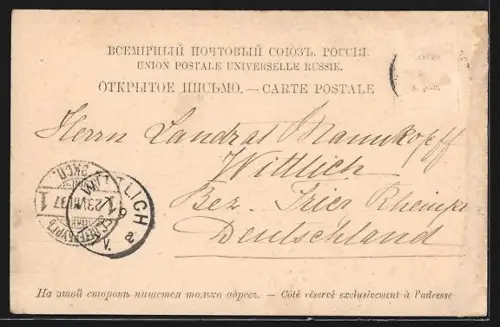 ВСЕМІРНЫЙ ПОЧТОВЫЙ СОЮЗЪ. РОССІЯ.
UNION POSTALE UNIVERSELLE RUSSIE.
ОТКРЫТОЕ ПИСЬМО.—CARTE POSTALE
Herrn Landrat
Wittlich
Bez. Trier
Deutschland
WITTLICH
1 23 VII 97 1
На этой сторонѣ пишется только адресъ. – Côté réservé exclusivement à l'adresse